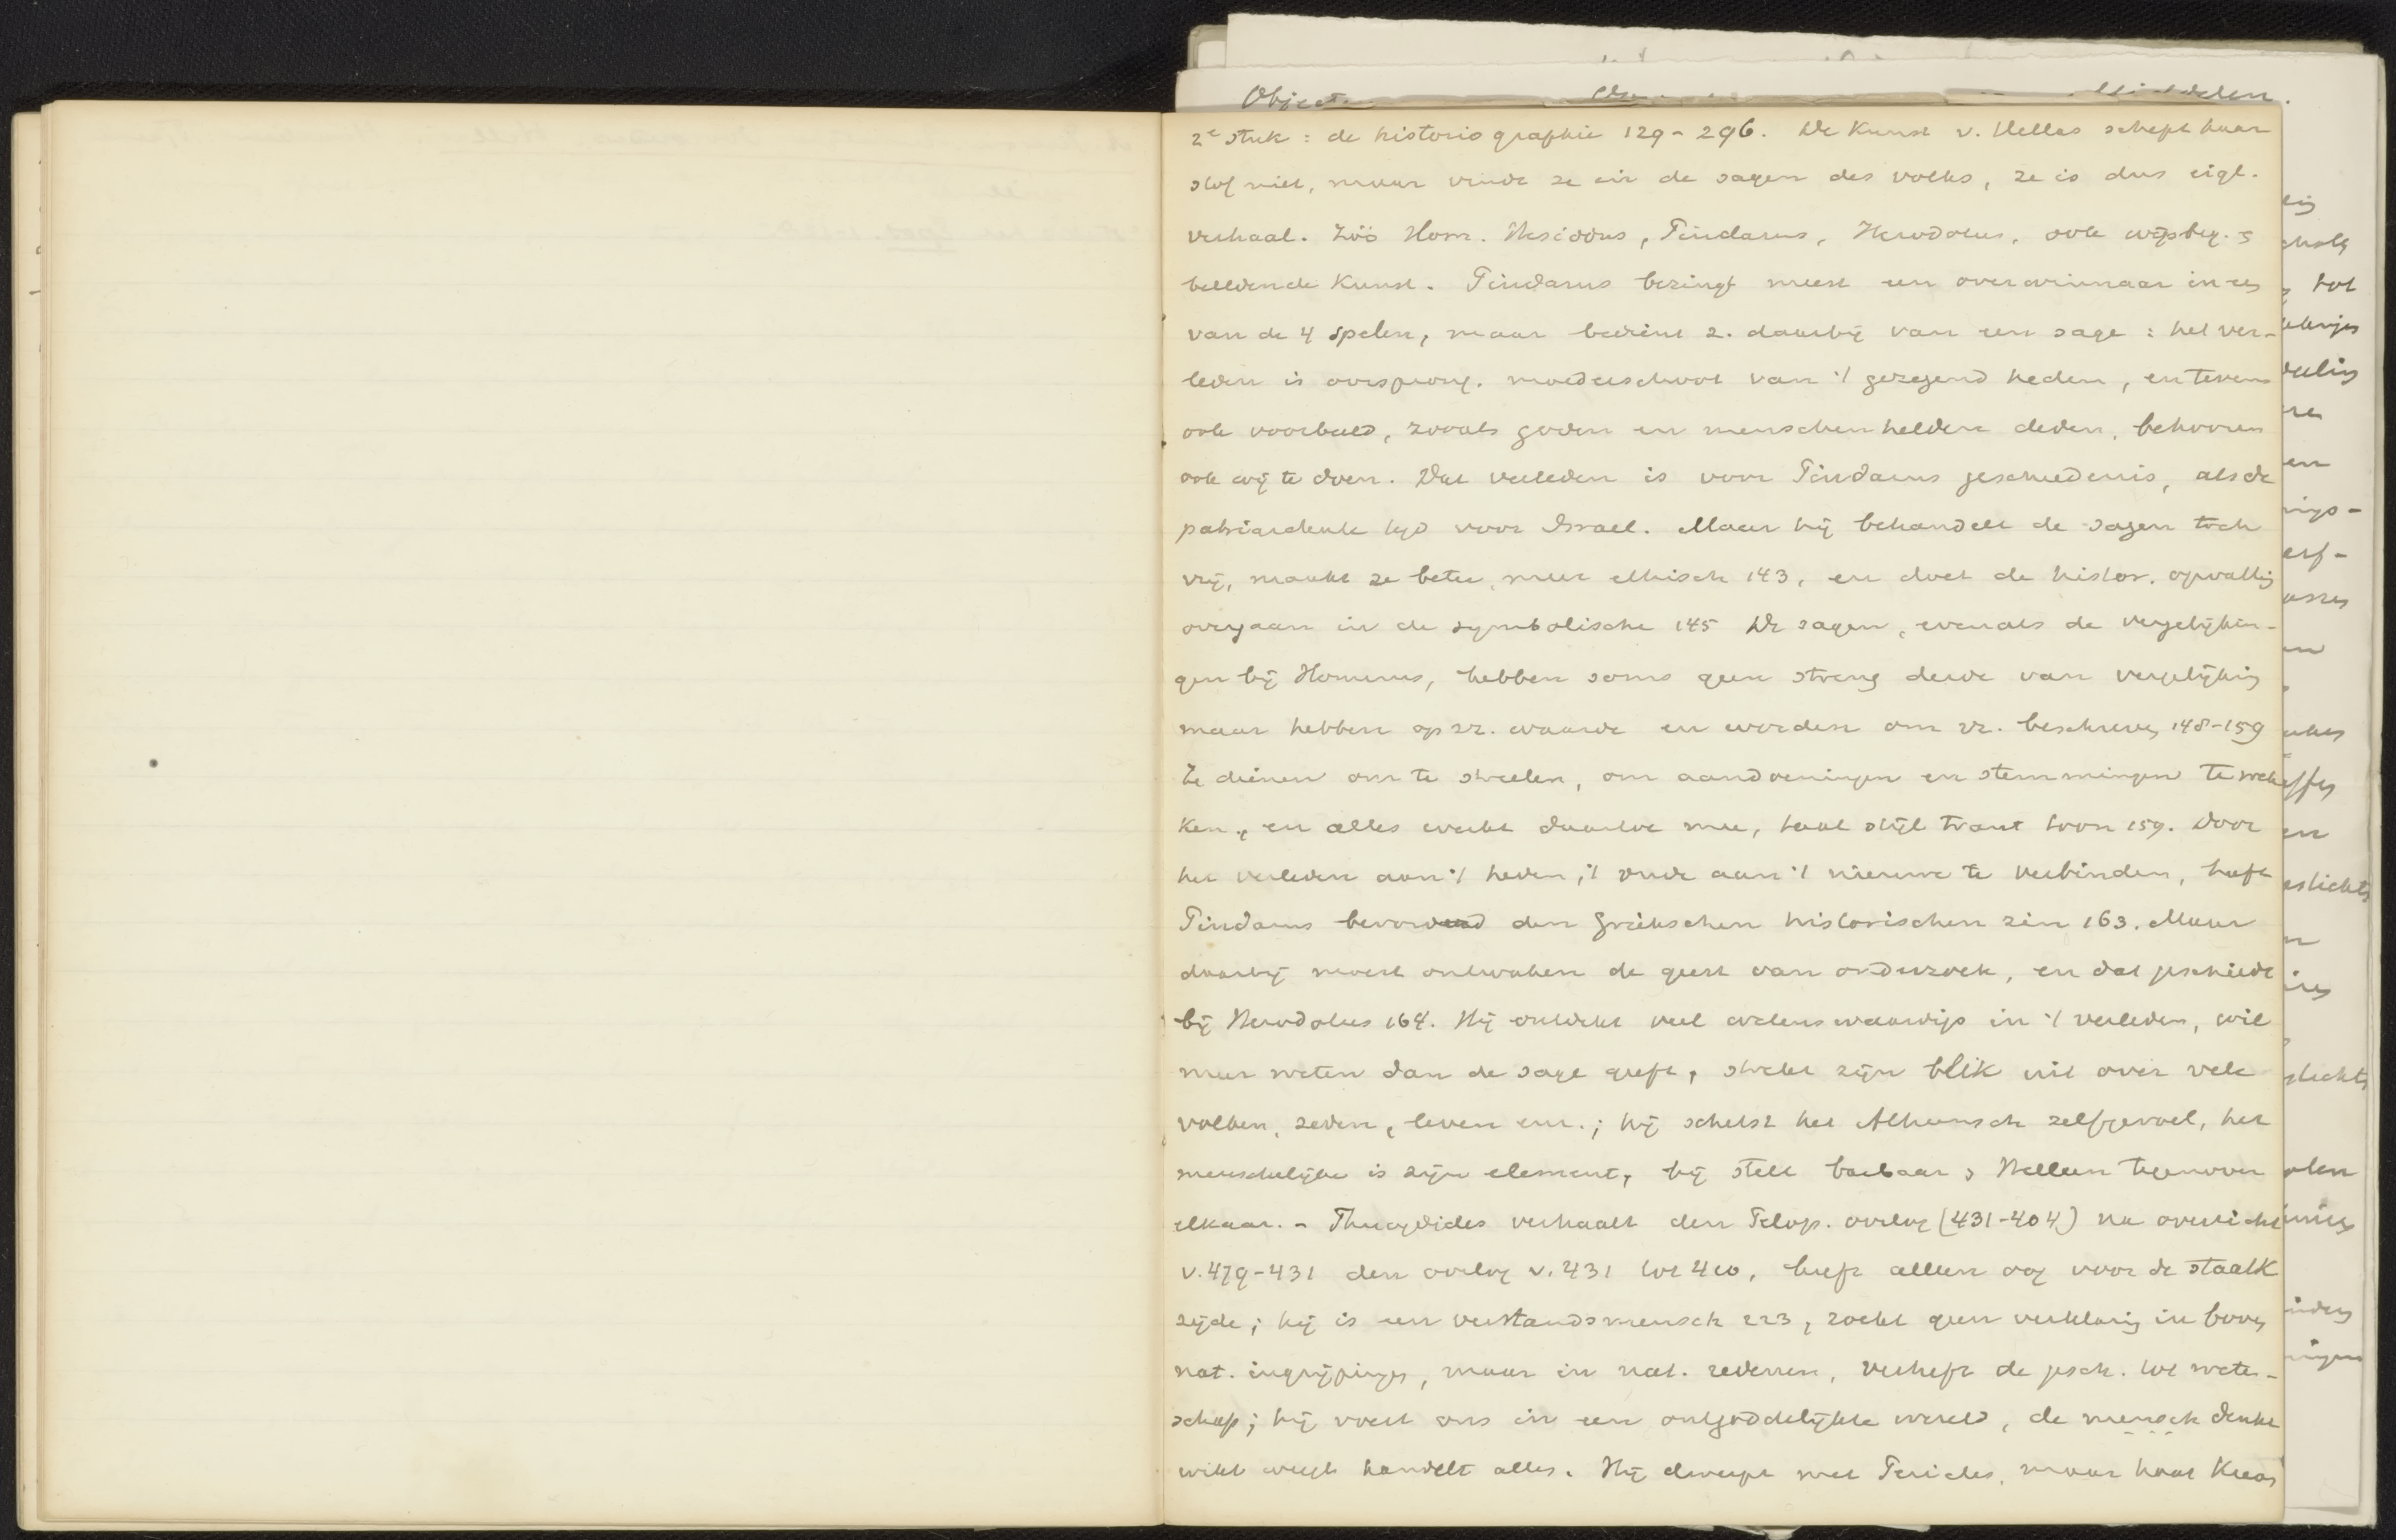 Object
2e stuk: de historiographie 129-296. De Kunst v. Hellas schept haar
stof niet, maar vindt ze in de sagen des volks, ze is dus eigl.
verhaal. Zóó Hom. Hesiodus, Pindarus, Herodotus, ook wijsbeg. &
beeldende Kunst. Pindarus bezingt meest een overwinnaar in een
van de 4 spelen, maar bedient z. daarbij van een sage: het ver-
leden is oorsprong. moederschoot van 't gezegend heden, en tevens
ook voorbeeld, zooals goden en menschen helden deden, behooren
ook wij te doen. Dat verleden is voor Pindarus geschiedenis, als de
patriarchale tijd voor Israel. Maar hij behandelt de sagen toch
vrij, maakt ze beter, meer ethisch 143, en doet de histor. opvatting
overgaan in de symbolische 145 De sagen, evenals de vergelijkin-
gen bij Homerus, hebben soms geen streng derde van vergelijking
maar hebben op zz. waarde en worden om zz. beschreven 148-159
Ze dienen om te streelen, om aandoeningen en stemmingen te wek
ken, en alles werkt daartoe mee, taal stijl trant toon 159. Door
het verleden aan 't heden, 't oude aan 't nieuwe te verbinden, heeft
Pindarus bevorderd den Griekschen historischen zin 163. Maar
daarbij moest ontwaken de geest van onderzoek, en dat geschiedt
bij Herodotus 164. Hij ontdekt veel wetenswaardigs in 't verleden, wil
meer weten dan de sage geeft, strekt zijn blik uit over vele
volken, zeden, leven enz.; hij schetst het Atheensch zelfgevoel, het
menschelijke is zijn element, hij stelt barbaar & Helleen tegenover
elkaar. - Thucydides verhaalt den Pelop. oorlog (431-404) na overzicht
v. 479-431 den oorlog v. 431 tot 410, heeft alleen oog voor de staatk
zijde; hij is een verstandsmensch 223, zoekt geen verklaring in boven
nat. ingrijpingen, maar in nat. redenen, verheft de gesch. tot weten-
schap; hij voert ons in een ontgoddelijkte wereld, de mensch denkt
wikt weegt handelt alles. Hij dweept met Pericles, maar haat Kleon